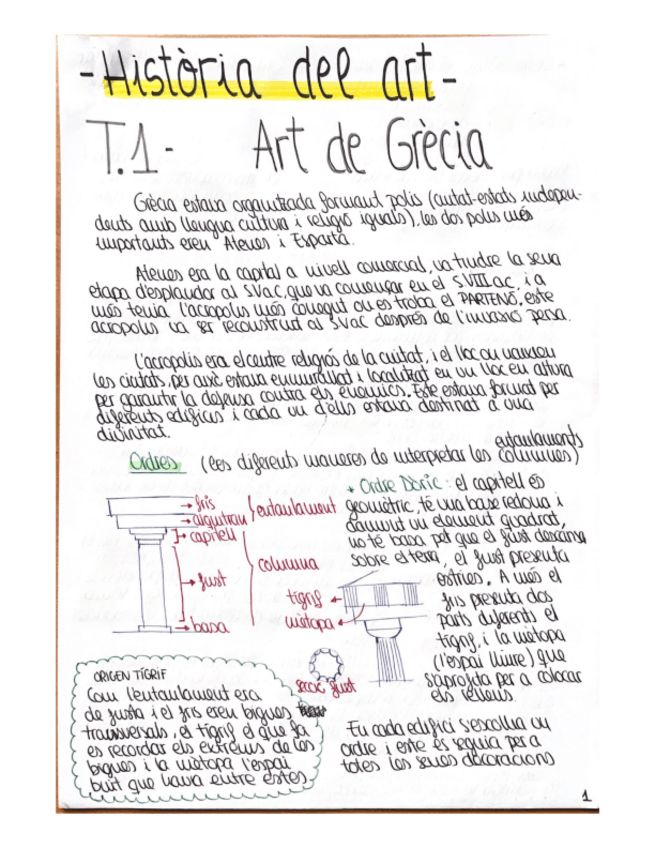 - Història del art -
T.1 - Art de Grècia
Grècia estava organitzada formant polis (ciutat-estats indepen-
dents amb llengua cultura i religió iguals), les dos polis més
importants eren Atenes i Esparta.
Atenes era la capital a nivell comercial, va tindre la seua
etapa d'esplandor al SVaC, que va començar en el SVIII aC, i a
més tenia l'acropolis més conegut on es troba el PARTENÓ, este
acropolis va ser reconstruit al SVaC després de l'invasió persa.
L'acropolis era el centre religiós de la ciutat, i el lloc on
les ciutats, per això estava emmurallat i localitzat en un lloc en altura
per garantir la defensa contra els enemics. Este estava format per
diferents edificis i cada un d'ells estava destinat a una
divinitat.
entaulaments
Ordres (les diferents maneres de interpretar les columnes)
fris
alquitrau
capitell
fust
basa
entaulament
columna
+ Ordre Dòric: el capitell és
geomètric, té una base redona i
damunt un element quadrat,
no té basa pel que el fust descansa
sobre el terra, el fust presenta
estries. A més el
fris presenta dos
parts diferents el
tígrif, i la mètopa
(l'espai lliure) que
s'aprofita per a colocar
els relleus.
tígrif
mètopa
secció fust
ORIGEN TÍGRIF
Com l'entaulament era
de fusta i el fris eren bigues
transversals, el tígrif el que fa
es recordar els extrems de les
bigues i la mètopa l'espai
buit que havia entre estes.
En cada edifici s'escollia un
ordre i este és seguia per a
totes les seues decoracions
1